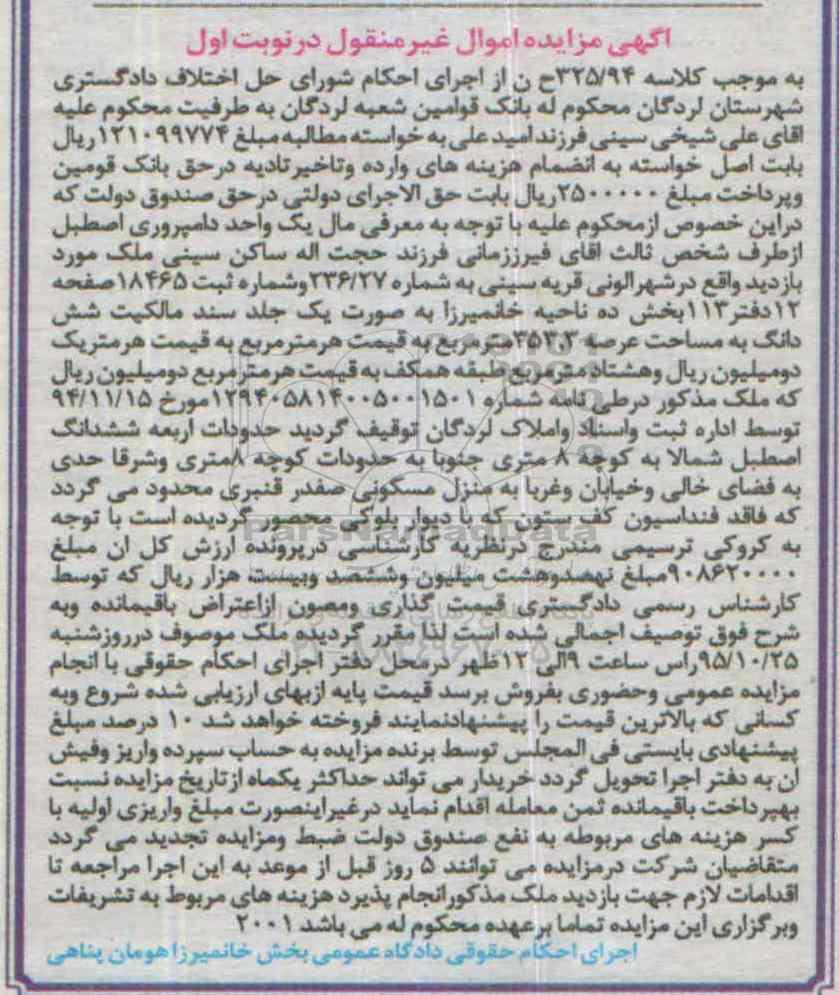 اگهی مزایده اموال غیرمنقول در نوبت اول
به موجب کلاسه ۳۲۵/۹۴ح ن از اجرای احکام شورای حل اختلاف دادگستری
شهرستان لردگان محکوم له بانک قوامین شعبه لردگان به طرفیت محکوم علیه
اقای علی شیخی سینی فرزند امید علی به خواسته مطالبه مبلغ ۱۲۱۰۹۹۷۷۴ ریال
بابت اصل خواسته به انضمام هزینه های وارده وتاخیر تادیه درحق بانک قومین
وپرداخت مبلغ ۲۵۰۰۰۰۰ریال بابت حق الاجرای دولتی درحق صندوق دولت که
دراین خصوص ازمحکوم علیه با توجه به معرفی مال یک واحد دامپروری اصطبل
ازطرف شخص ثالث اقای فیرززمانی فرزند حجت اله ساکن سینی ملک مورد
بازدید واقع درشهرالونی قریه سینی به شماره ۲۳۶/۲۷وشماره ثبت ۱۸۴۶۵صفحه
۱۲دفتر۱۱۳بخش ده ناحیه خانمیرزا به صورت یک جلد سند مالکیت شش
دانگ به مساحت عرصه ۳۵۳.۳مترمربع به قیمت هرمترمربع به قیمت هرمتریک
دومیلیون ریال وهشتاد مترمربع طبقه همکف به قیمت هرمترمربع دومیلیون ریال
که ملک مذکور درطی نامه شماره ۱۲۹۴۰۵۸۱۴۰۰۵۰۰۱۵۰۱مورخ ۹۴/۱۱/۱۵
توسط اداره ثبت واسناد واملاک لردگان توقیف گردید حدودات اربعه ششدانگ
اصطبل شمالا به کوچه ۸ متری جنوبا به حدودات کوچه ۸متری وشرقا حدی
به فضای خالی وخیابان وغربا به منزل مسکونی صفدر قنبری محدود می گردد
که فاقد فنداسیون کف ستون که با دیوار بلوکی محصور گردیده است با توجه
به کروکی ترسیمی مندرج درنظریه کارشناسی درپرونده ارزش کل ان مبلغ
۹۰۸۶۲۰۰۰۰مبلغ نهصدوهشت میلیون وششصد وبیست هزار ریال که توسط
کارشناس رسمی دادگستری قیمت گذاری ومصون ازاعتراض باقیمانده وبه
شرح فوق توصیف اجمالی شده است لذا مقرر گردیده ملک موصوف درروزشنبه
۹۵/۱۰/۲۵راس ساعت ۹الی ۱۲ظهر درمحل دفتر اجرای احکام حقوقی با انجام
مزایده عمومی وحضوری بفروش برسد قیمت پایه ازبهای ارزیابی شده شروع وبه
کسانی که بالاترین قیمت را پیشنهادنمایند فروخته خواهد شد ۱۰ درصد مبلغ
پیشنهادی بایستی فی المجلس توسط برنده مزایده به حساب سپرده واریز وفیش
ان به دفتر اجرا تحویل گردد خریدار می تواند حداکثر یکماه ازتاریخ مزایده نسبت
بهپرداخت باقیمانده ثمن معامله اقدام نماید درغیراینصورت مبلغ واریزی اولیه با
کسر هزینه های مربوطه به نفع صندوق دولت ضبط ومزایده تجدید می گردد
متقاضیان شرکت درمزایده می توانند ۵ روز قبل از موعد به این اجرا مراجعه تا
اقدامات لازم جهت بازدید ملک مذکورانجام پذیرد هزینه های مربوط به تشریفات
وبرگزاری این مزایده تماما برعهده محکوم له می باشد ۲۰۰۱
اجرای احکام حقوقی دادگاه عمومی بخش خانمیرزا هومان پناهی
ParsNamadData